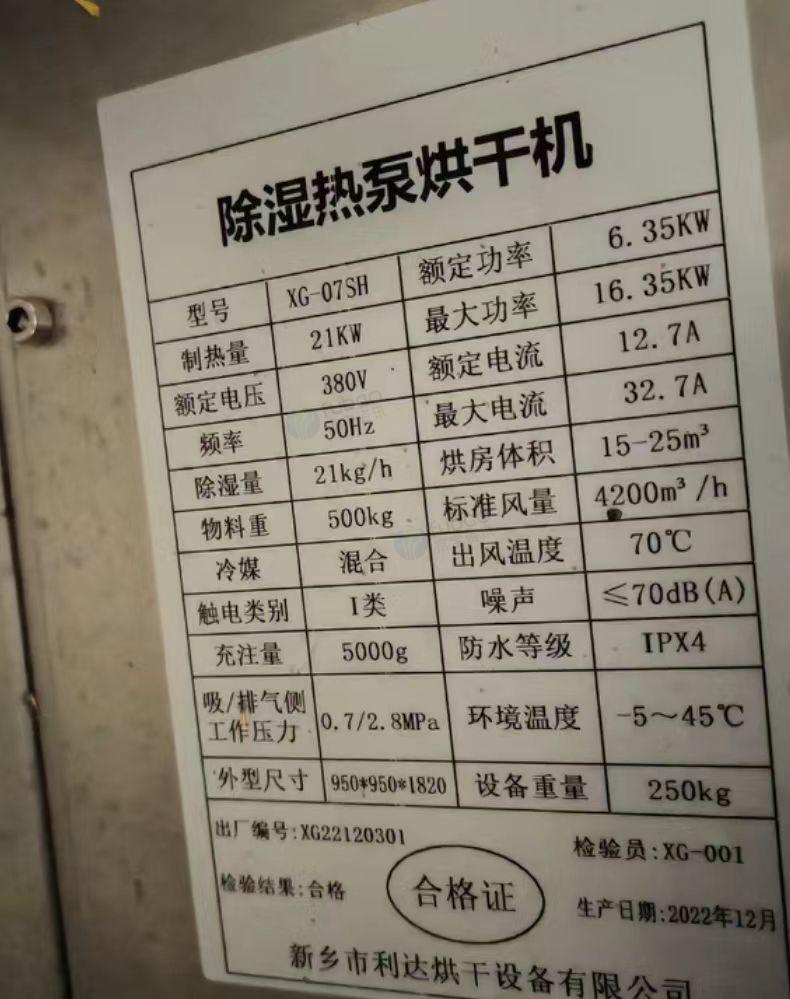 除湿热泵烘干机
型号 XG-07SH 额定功率 6.35KW
制热量 21KW 最大功率 16.35KW
额定电压 380V 额定电流 12.7A
频率 50Hz 最大电流 32.7A
除湿量 21kg/h 烘房体积 15-25m³
物料重 500kg 标准风量 4200m³/h
冷媒 混合 出风温度 70℃
触电类别 I类 噪声 ≤70dB(A)
充注量 5000g 防水等级 IPX4
吸/排气侧
工作压力 0.7/2.8MPa 环境温度 -5～45℃
外型尺寸 950*950*1820 设备重量 250kg
出厂编号:XG22120301 检验员:XG-001
检验结果:合格 合格证 生产日期:2022年12月
新乡市利达烘干设备有限公司